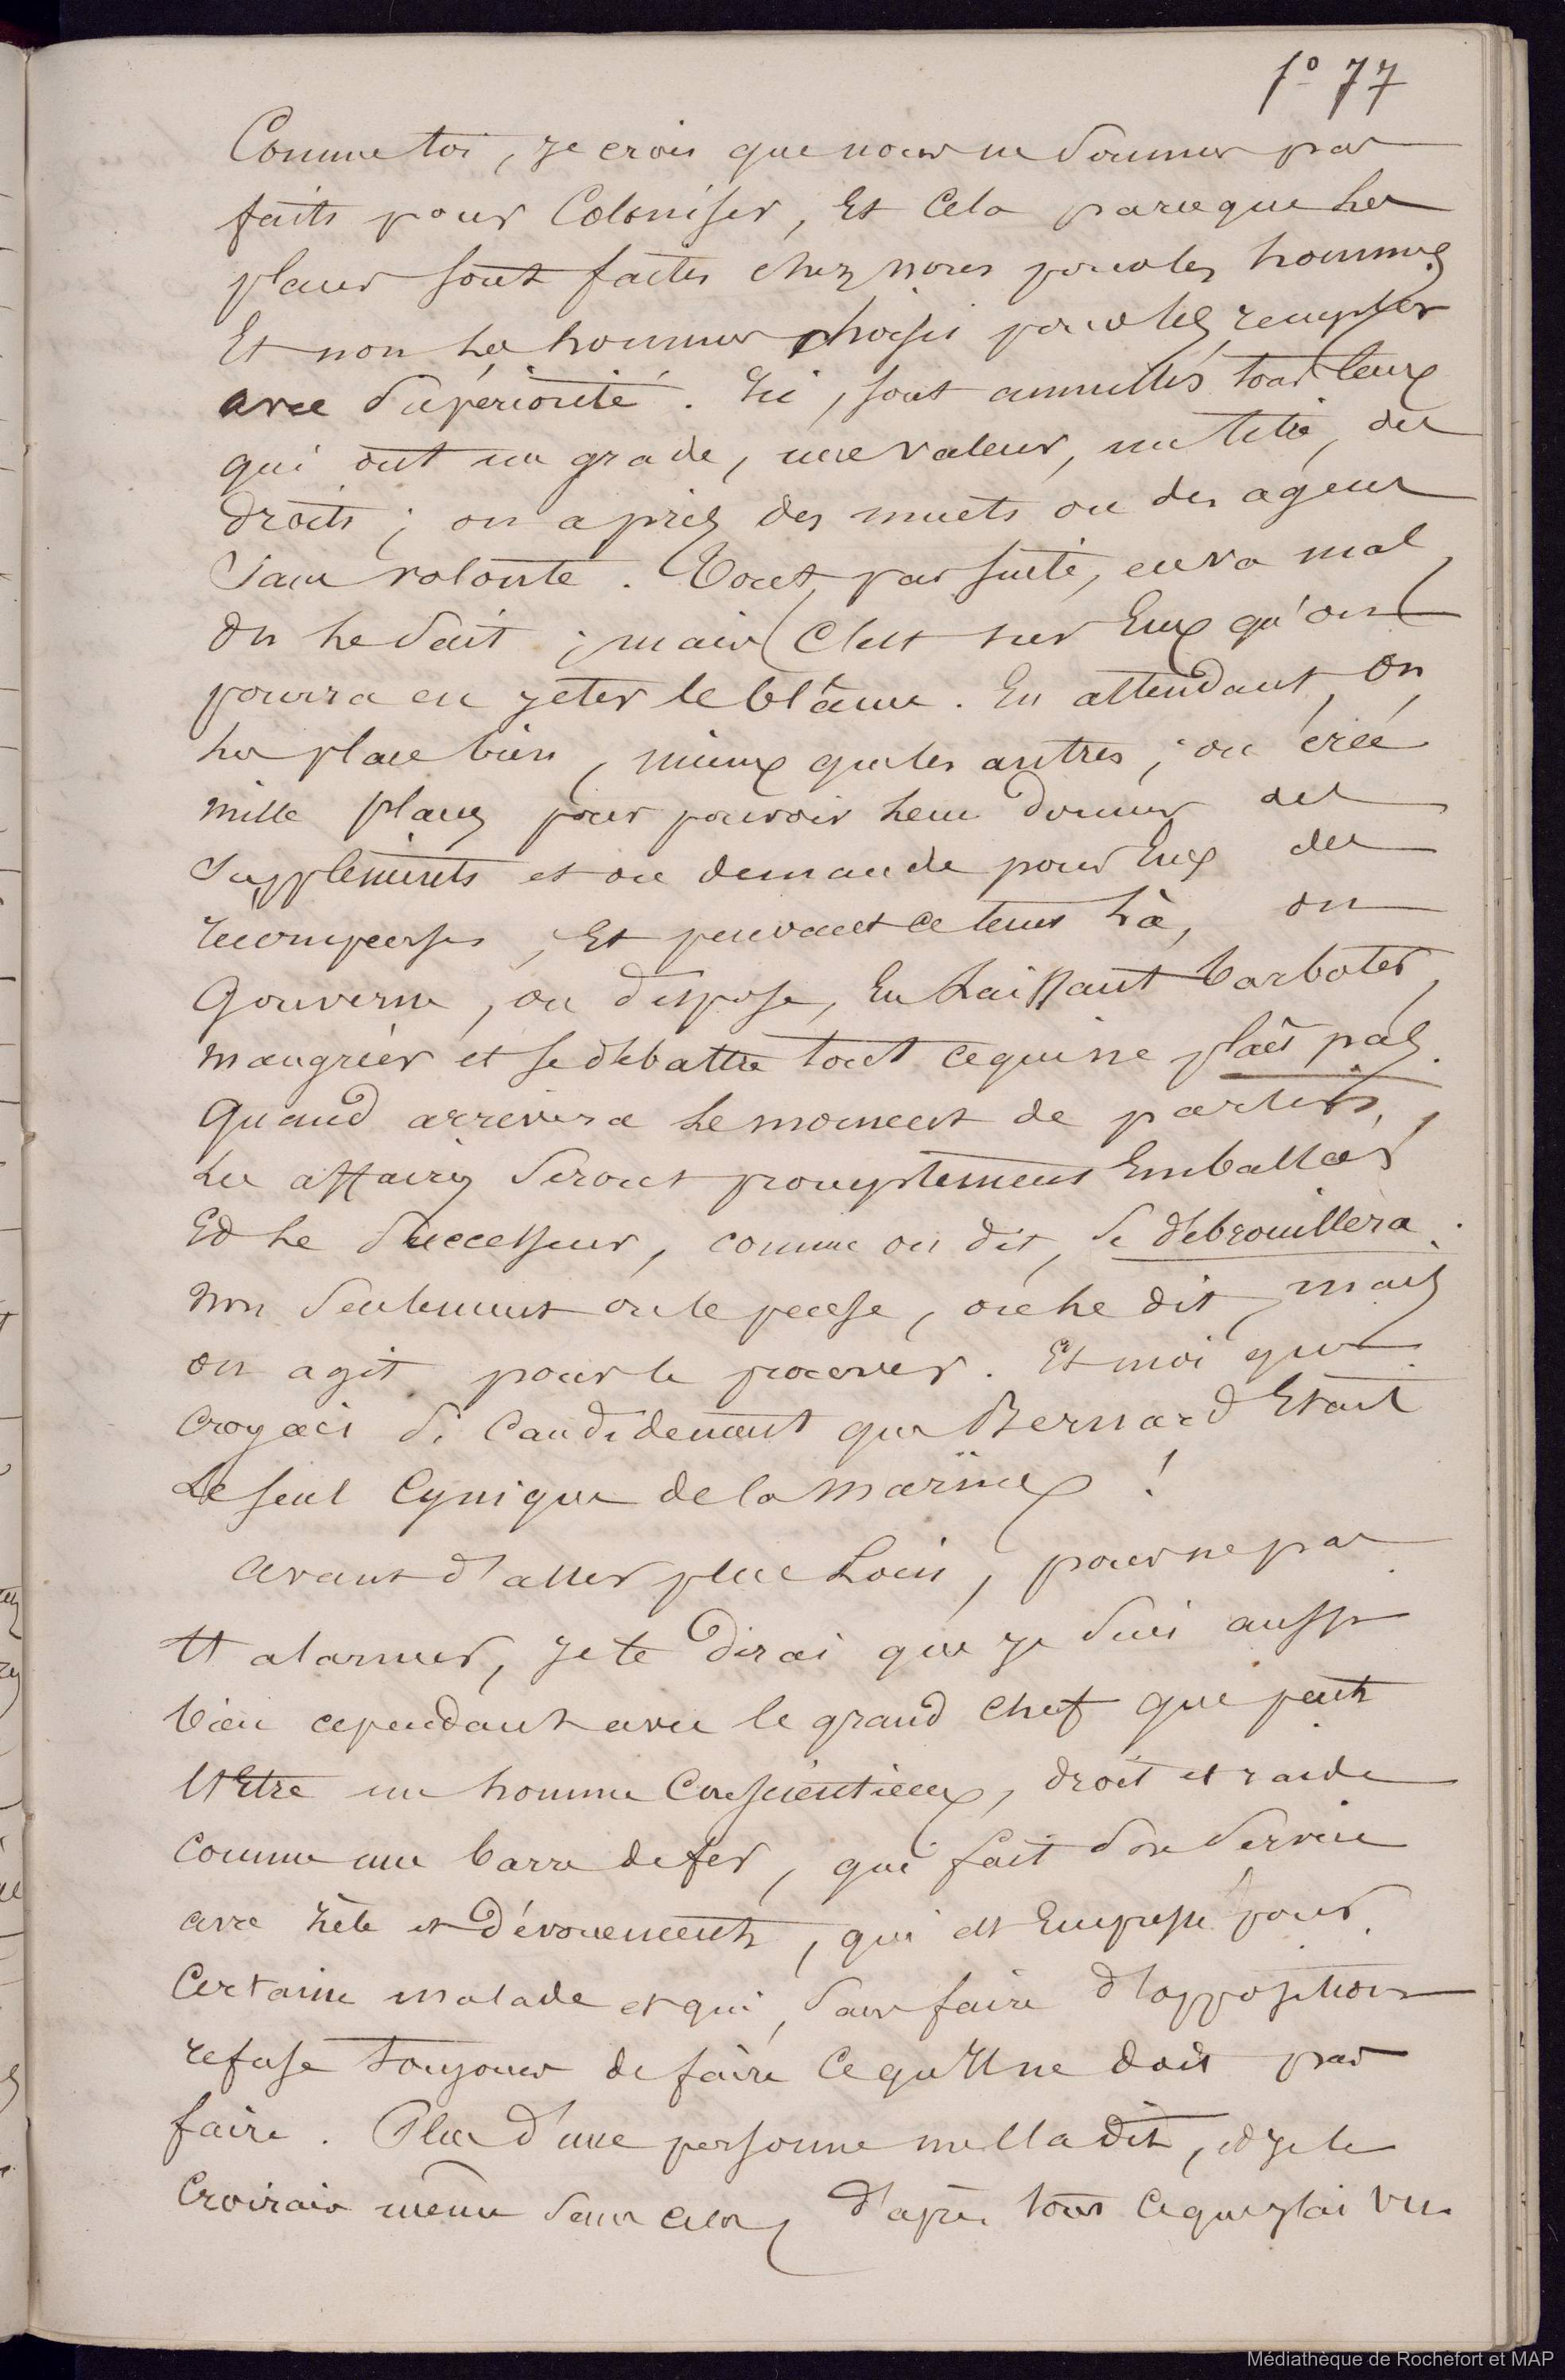 fo 77
Comme toi, je crois que nous ne sommes pas
faits pour coloniser, et cela parceque les
places sont faites chez nous pour les hommes
et non les hommes choisis pour les remplir
avec supériorité. Ici, sont annullés tous ceux
qui ont un grade, une valeur, un titre, des
droits ; on a pris des muets ou des agents
sans volonté. Tout, par suite, en va mal,
on le sait ; mais c'est sur eux qu'on
pourra en jeter le blâme. En attendant, on
les place bien, mieux que les autres ; on crée
mille places pour pouvoir leur donner des
suppléments et on demande pour eux des
récompenses, et pendant ce tems là, on
gouverne, on dispose, en laissant barboter,
maugréer et se débattre tout ce qui ne plaît pas.
Quand arrivera le moment de partir,
les affaires seront promptement emballées
et le successeur, comme on dit, se débrouillera.
Non seulement on le pense, on le dit, mais
on agit pour le prouver. Et moi qui
croyais si candidement que Bernard était
le seul cynique de la marine !
Avant d'aller plus loin, pour ne pas
t'alarmer, je te dirai que je suis aussi
bien cependant avec le grand chef que peut
l'être un homme consciencieux, droit et raide
comme une barre de fer, qui fait son service
avec zèle et dévouement, qui est empressé pour
certaine malade et qui, sans faire d'opposition
refuse toujours de faire ce qu'il ne doit pas
faire. Plus d'une personne me l'a dit, et je le
croirais même sans cela, d'après tout ce que j'ai vu
Médiathèque de Rochefort et MAP